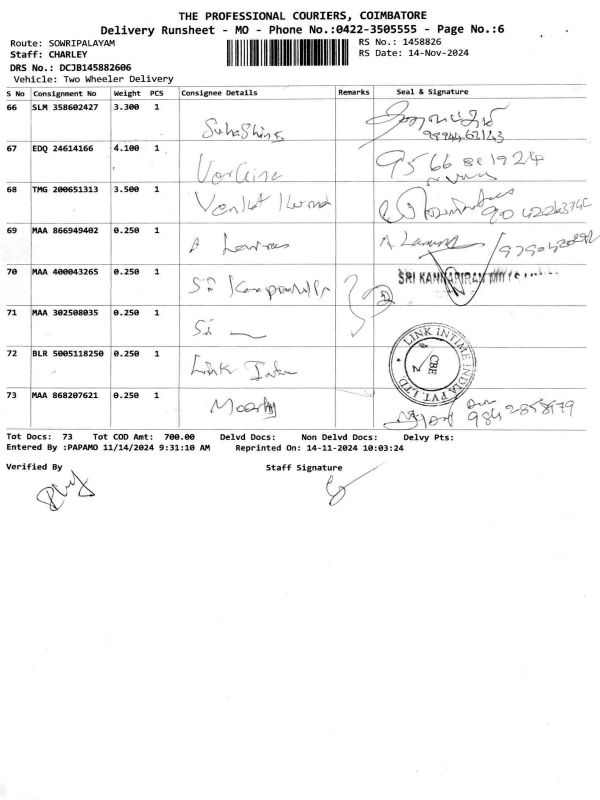 THE PROFESSIONAL COURIERS, COIMBATORE
Delivery Runsheet - MO - Phone No.:0422-3505555 - Page No.:6
Route: SOWRIPALAYAM RS No.: 1458826
Staff: CHARLEY RS Date: 14-Nov-2024
DRS No.: DCJB145882606
Vehicle: Two Wheeler Delivery
S No Consignment No Weight PCS Consignee Details Remarks Seal & Signature
66 SLM 358602427 3.300 1
67 EDQ 24614166 4.100 1 95 66 881924
68 TMG 200651313 3.500 1 Venkat
69 MAA 866949402 0.250 1 A
70 MAA 400043265 0.250 1 Sri SRI KANNAPIRAN MILLS
71 MAA 302508035 0.250 1 Sri
72 BLR 5005118250 0.250 1 Link LINK INTIME INDIA PVT. LTD. * CBE 2
73 MAA 868207621 0.250 1 Moorthy 984 2858179
Tot Docs: 73 Tot COD Amt: 700.00 Delvd Docs: Non Delvd Docs: Delvy Pts:
Entered By :PAPAMO 11/14/2024 9:31:10 AM Reprinted On: 14-11-2024 10:03:24
Verified By Staff Signature